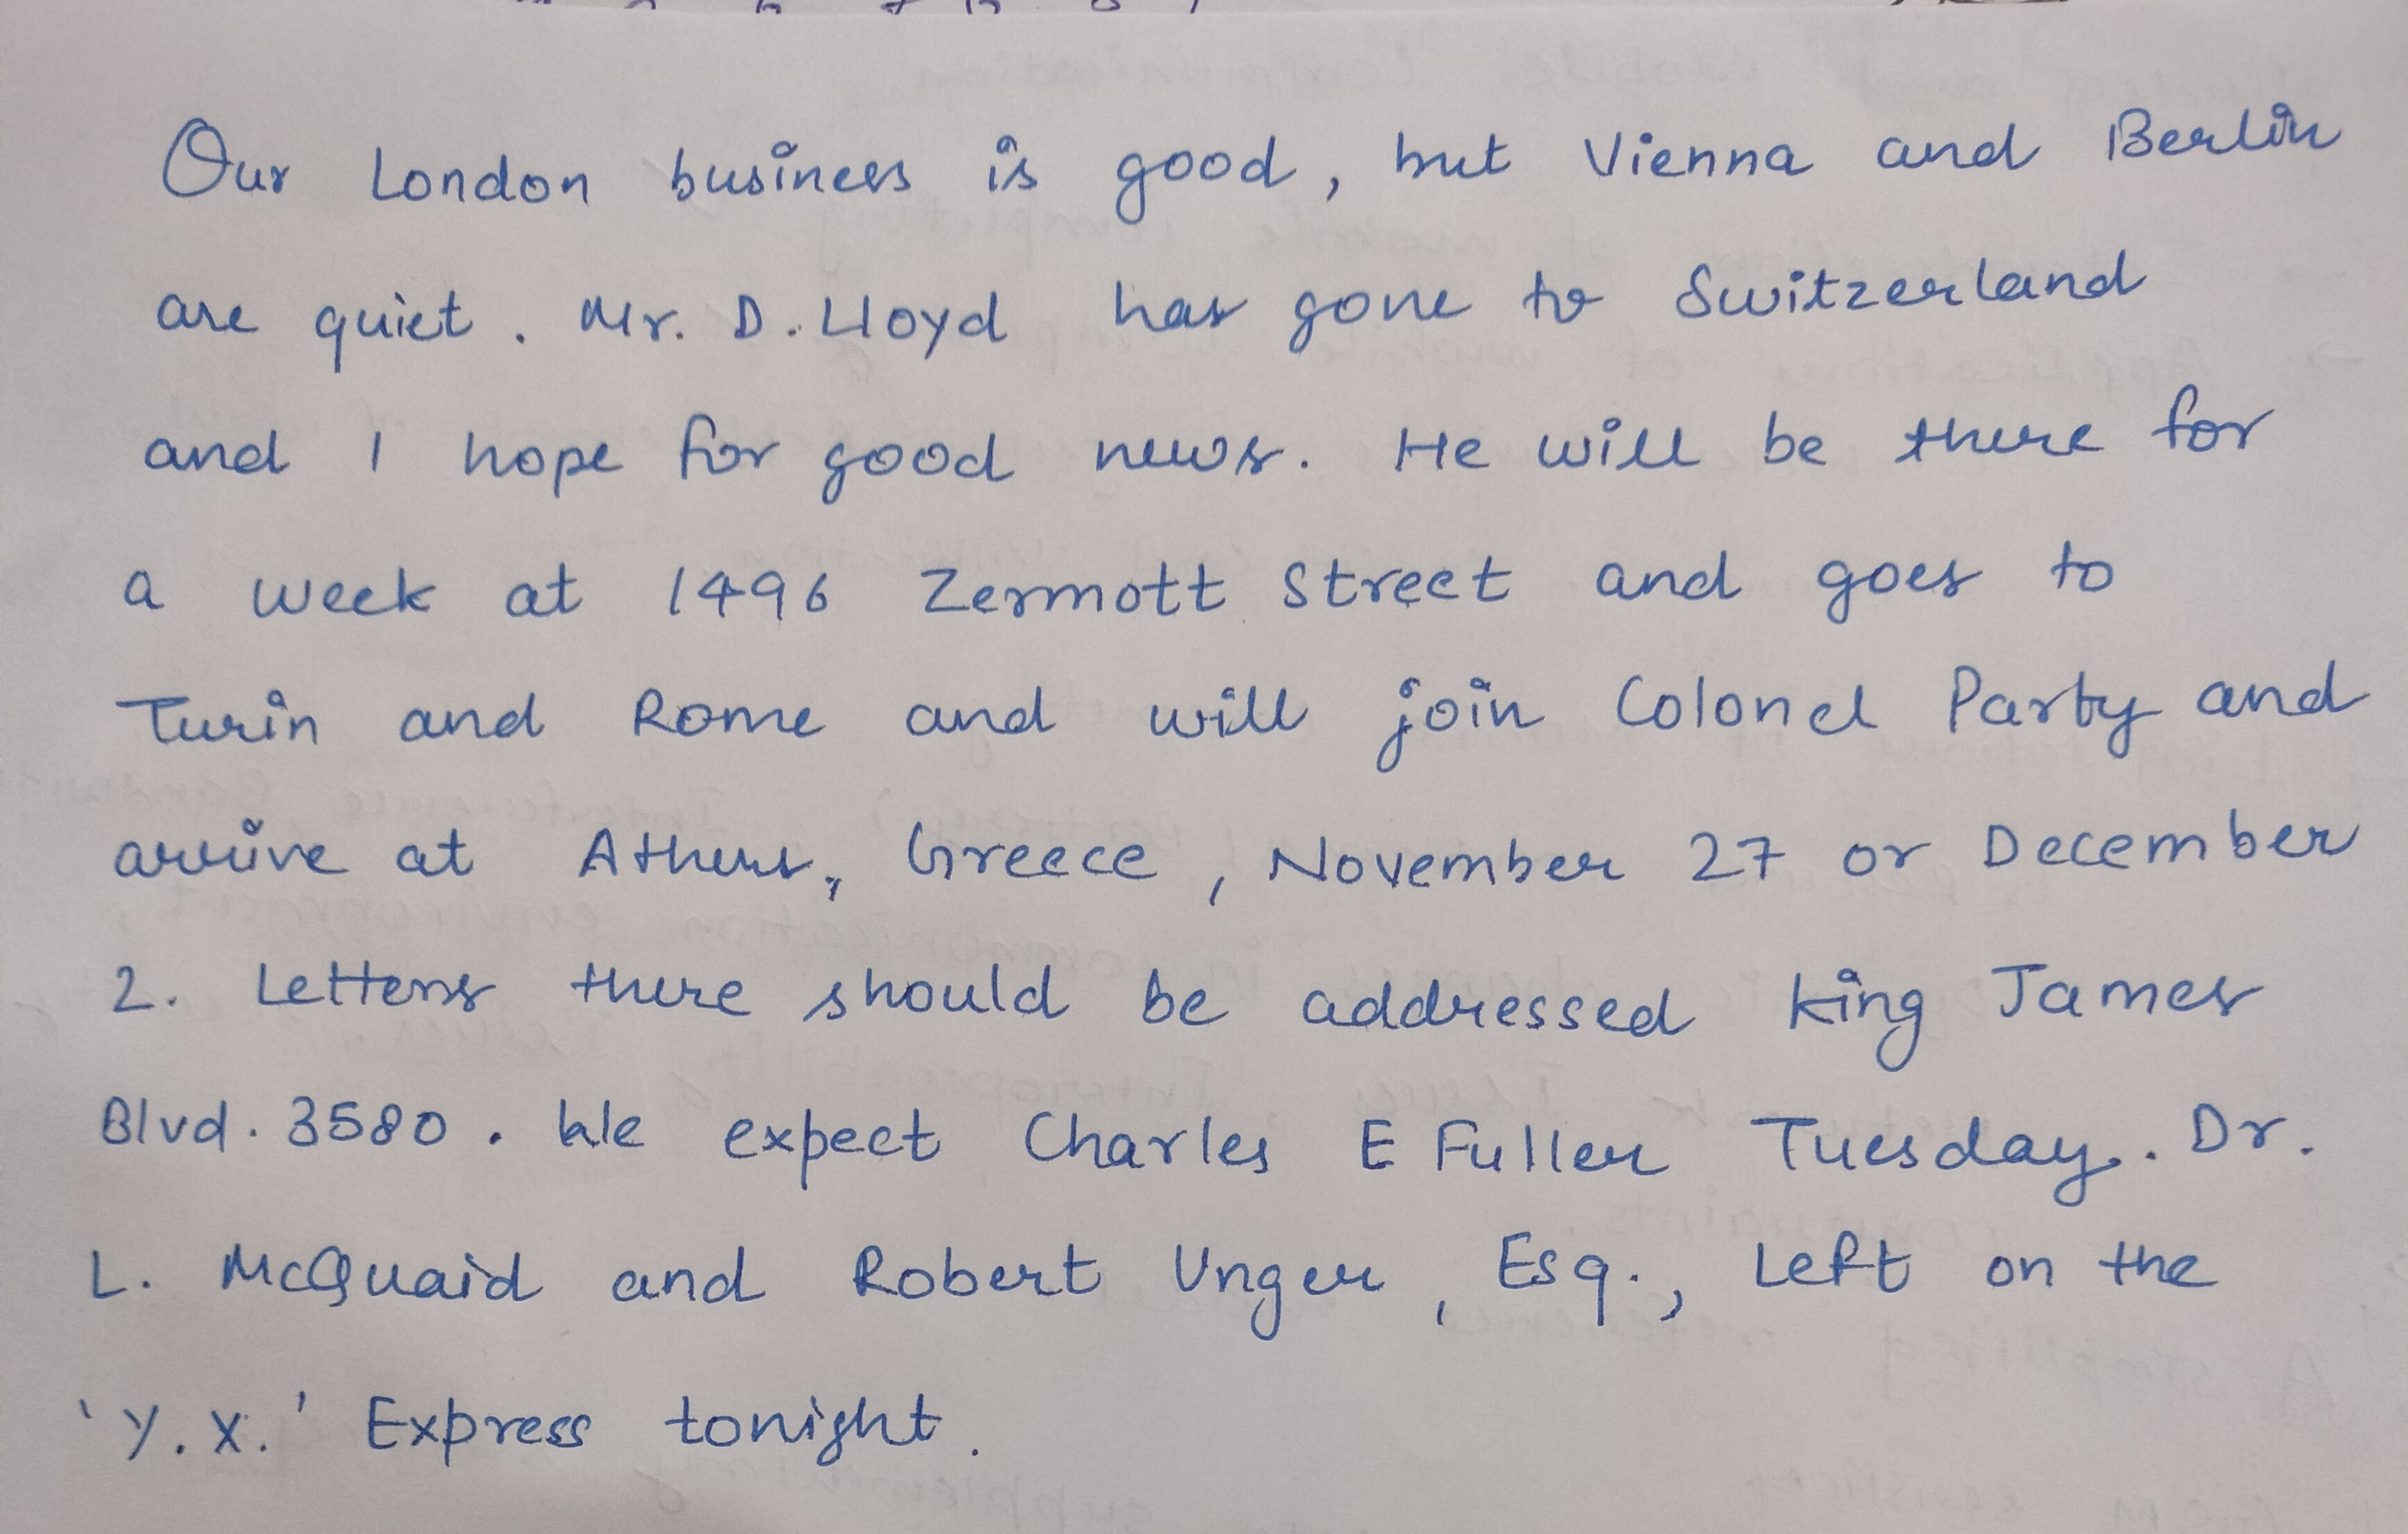 Our London business is good, but Vienna and Berlin
are quiet. Mr. D. Lloyd has gone to Switzerland
and I hope for good news. He will be there for
a week at 1496 Zermott Street and goes to
Turin and Rome and will join Colonel Party and
arrive at Athens, Greece, November 27 or December
2. Letters there should be addressed King James
Blvd. 3580. We expect Charles E Fuller Tuesday. Dr.
L. McQuaid and Robert Unger, Esq., Left on the
'Y.X.' Express tonight.